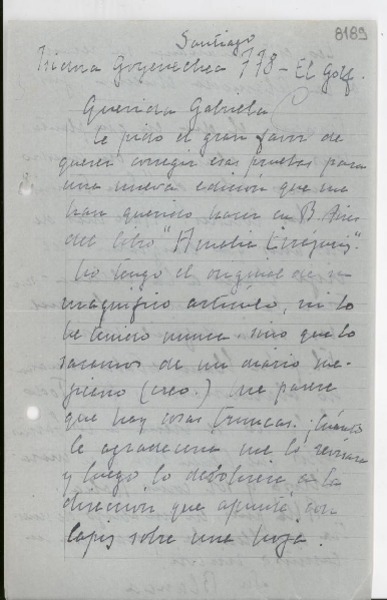 8189
Santiago
Isidora Goyenechea 778 - El Golf.
Querida Gabriela
Le pido el gran favor de
querer corregir esas pruebas para
una nueva edición que me
han querido hacer en B. Aires
del libro "
No tengo el original de su
magnífico artículo, ni lo
he tenido nunca sino que lo
sacamos de un diario
(creo.) Me parece
que hay cosas truncas. ¡Cuánto
le agradecería me lo
y luego lo a la
dirección que apunté con
lápiz sobre una hoja.